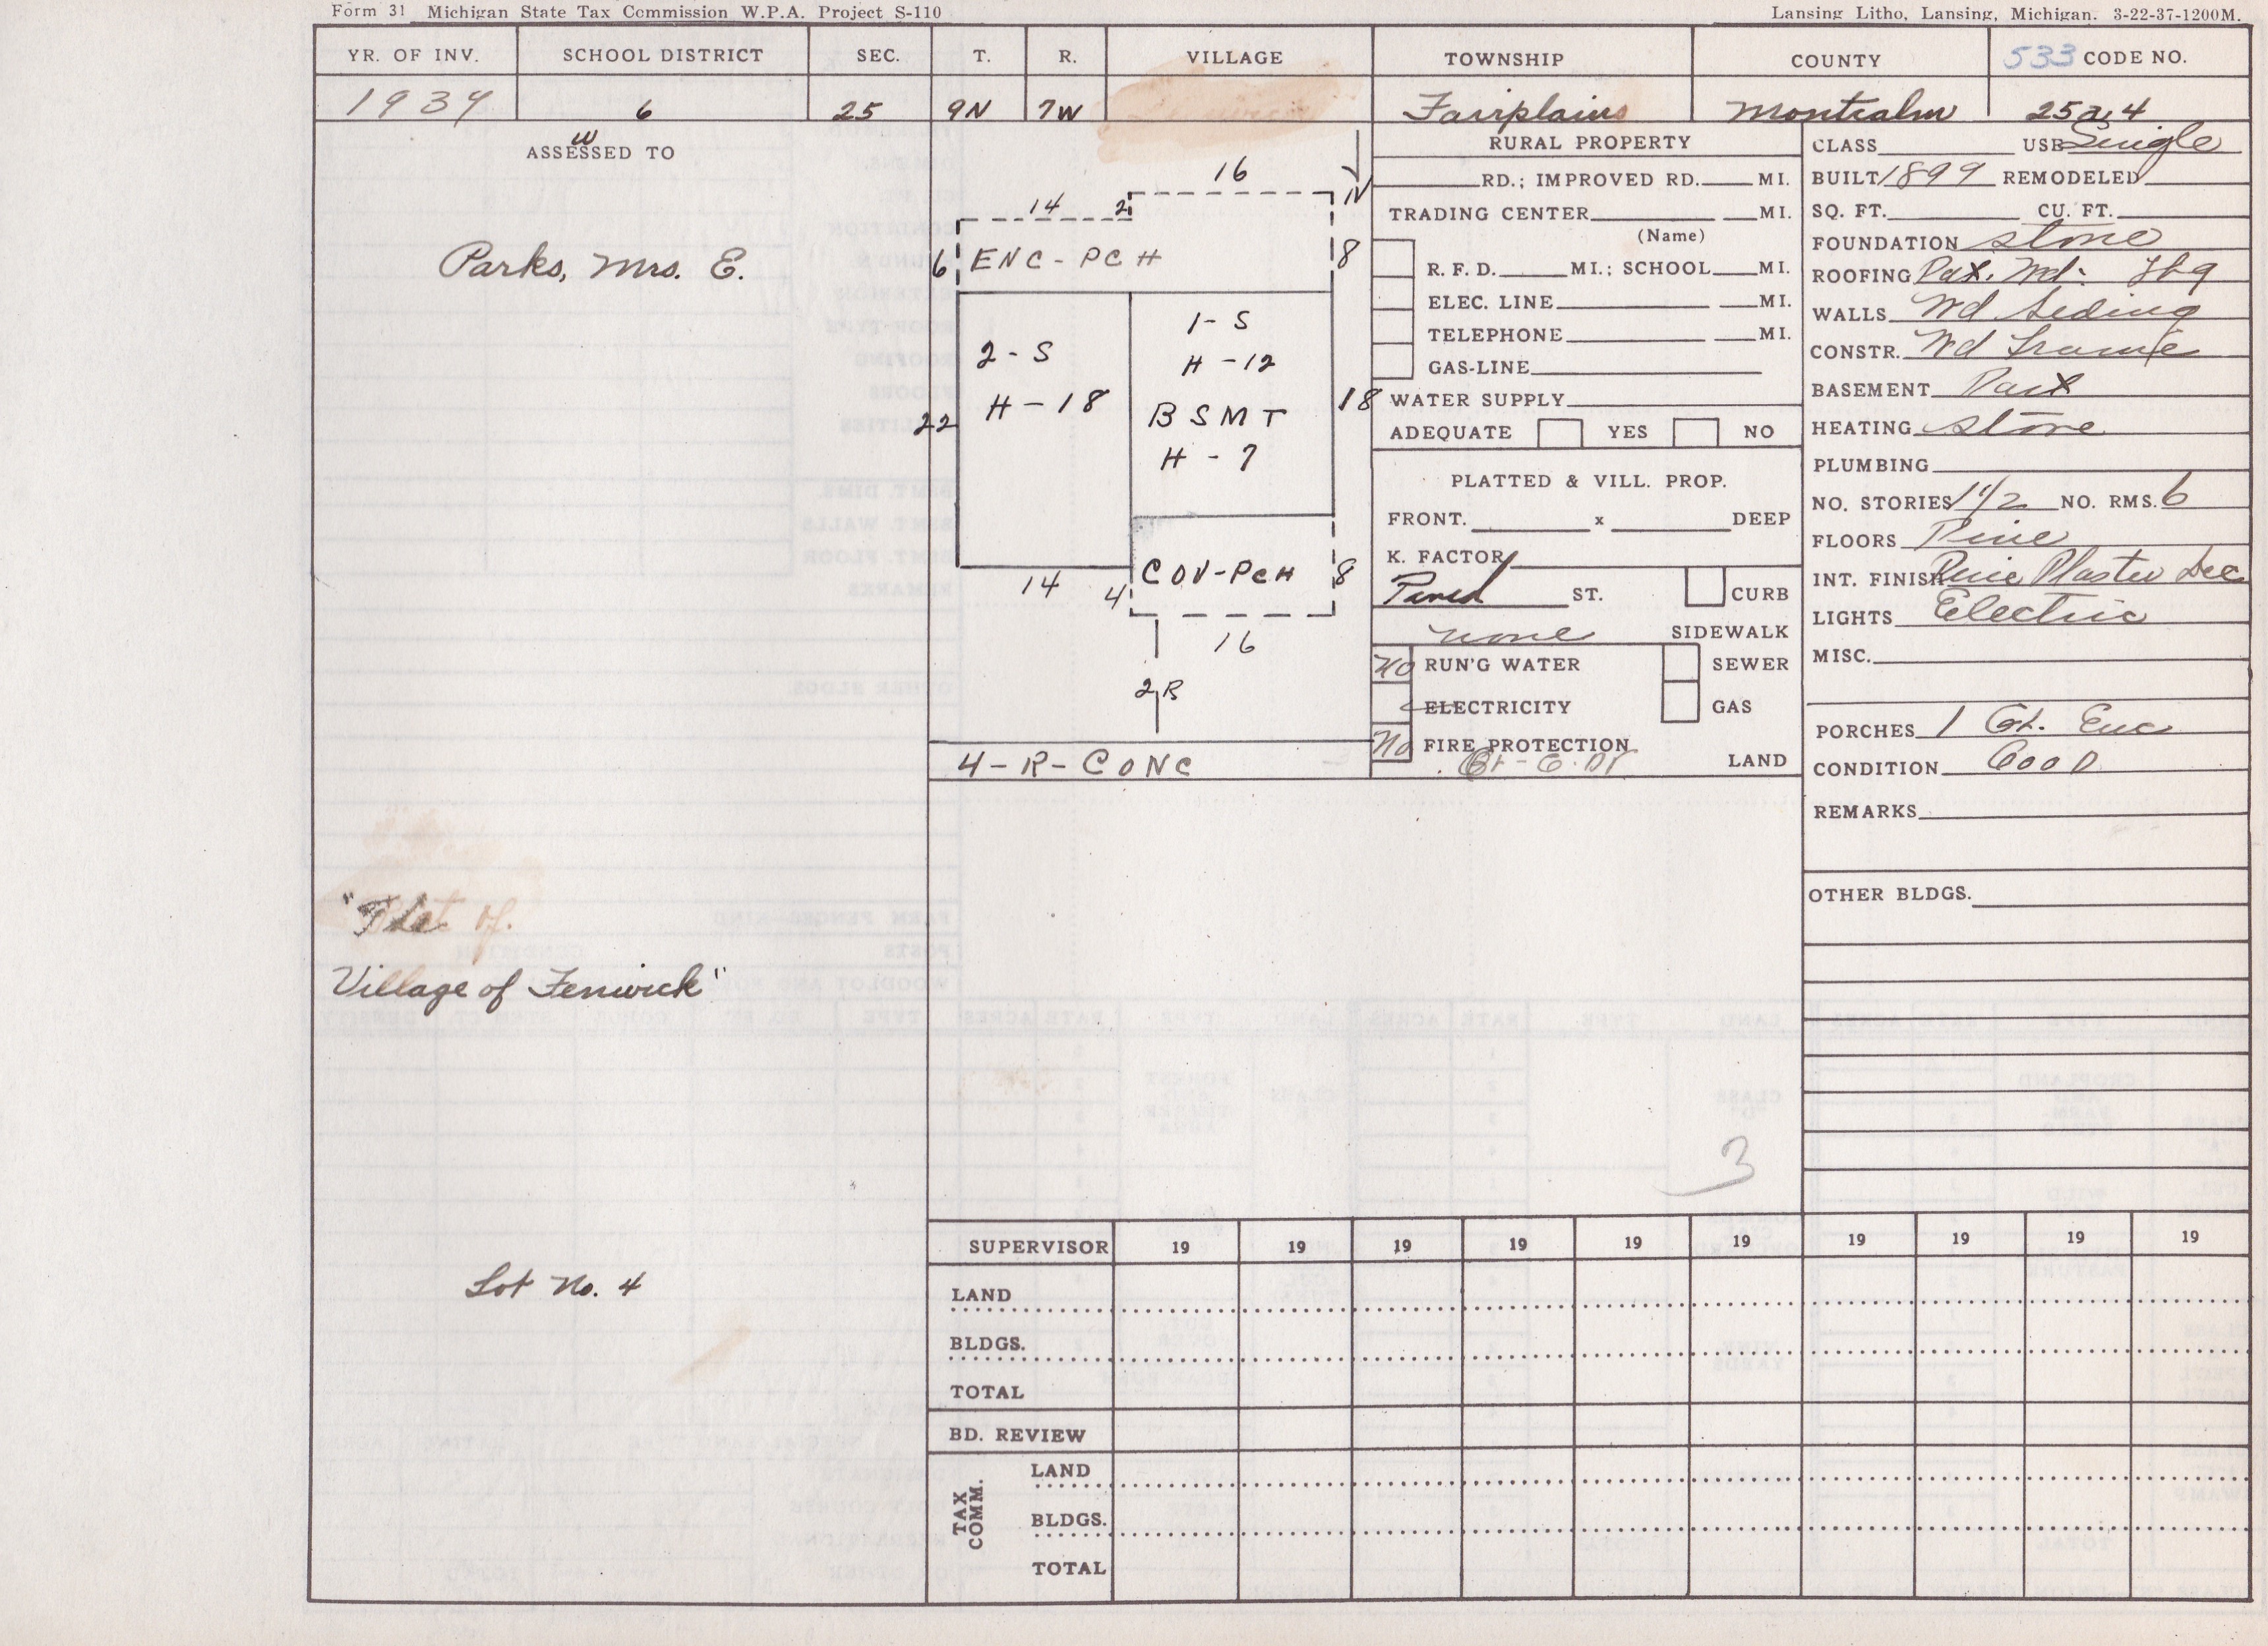 Form 31 Michigan State Tax Commission W.P.A. Project S-110
Lansing Litho, Lansing, Michigan. 3-22-37-1200M.
YR. OF INV. SCHOOL DISTRICT SEC. T. R. VILLAGE TOWNSHIP COUNTY 533 CODE NO.
1939 6 25 9N 7W Fairplains Montcalm 25a,4
W
ASSESSED TO
Parks, Mrs. E.
"Plat of
Village of Fenwick"
Lot No. 4
16
N
14 2
6 ENC-PCH 8
2-S
H-18
22
1-S
H-12
BSMT
H-7
18
COV-PCH 8
14 4
16
2 R
4-R-CONC
RURAL PROPERTY
RD.; IMPROVED RD. MI.
TRADING CENTER MI.
(Name)
R. F. D. MI.; SCHOOL MI.
ELEC. LINE MI.
TELEPHONE MI.
GAS-LINE
WATER SUPPLY
ADEQUATE YES NO
PLATTED & VILL. PROP.
FRONT. x DEEP
K. FACTOR
Paved ST. CURB
none SIDEWALK
No RUN'G WATER SEWER
ELECTRICITY GAS
No FIRE PROTECTION
LAND
CLASS USE Single
BUILT 1899 REMODELED
SQ. FT. CU. FT.
FOUNDATION Stone
ROOFING Pax. Wd. Shg
WALLS Wd Siding
CONSTR. Wd Frame
BASEMENT Part
HEATING Stove
PLUMBING
NO. STORIES 1 1/2 NO. RMS. 6
FLOORS Pine
INT. FINISH Pine Plaster Dec
LIGHTS Electric
MISC.
PORCHES 1 Gl. Enc
CONDITION Good
REMARKS
OTHER BLDGS.
3
SUPERVISOR 19 19 19 19 19 19 19 19 19 19
LAND
BLDGS.
TOTAL
BD. REVIEW
TAX COMM.
LAND
BLDGS.
TOTAL